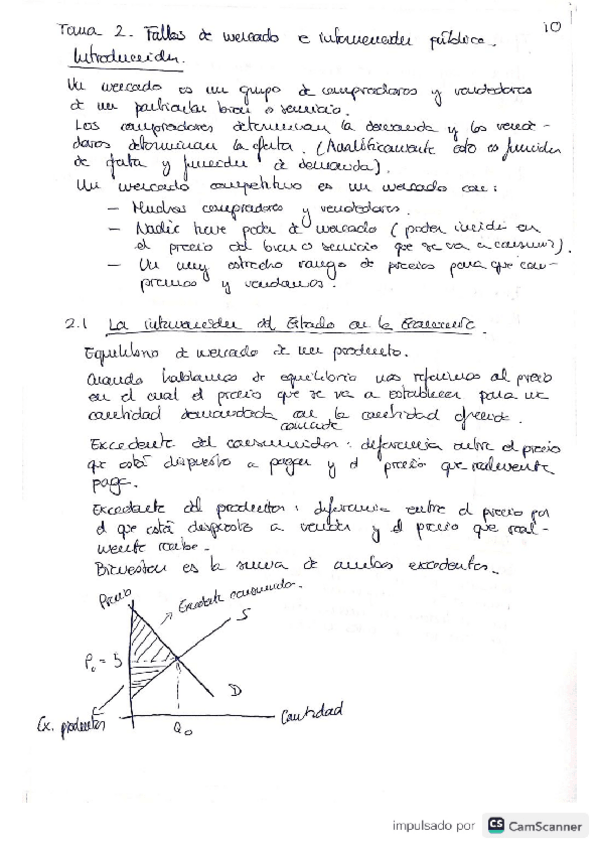 Tema 2. Fallos de mercado e intervención pública. 10
Introducción.
Un mercado es un grupo de compradores y vendedores
de un particular bien o servicio.
Los compradores determinan la demanda y los vende-
dores determinan la oferta. (Analíticamente esto es función
de oferta y función de demanda).
Un mercado competitivo es un mercado con:
- Muchos compradores y vendedores.
- Nadie tiene poder de mercado (poder incidir en
el precio del bien o servicio que se va a consumir).
- Un muy estrecho rango de precios para que com-
premos y vendamos.
2.1 La intervención del Estado en la Economía.
Equilibrio de mercado de un producto.
Cuando hablamos de equilibrio nos referimos al precio
en el cual el precio que se va a establecer para una
cantidad demandada con la cantidad ofrecida.
coincide
Excedente del consumidor: diferencia entre el precio
que está dispuesto a pagar y el precio que realmente
paga.
Excedente del productor: diferencia entre el precio por
el que está dispuesto a vender y el precio que real-
mente recibe.
Bienestar es la suma de ambos excedentes.
Precio
Excedente consumidor.
S
P₀ = 5
D
Ex. productor
Q₀
Cantidad
impulsado por CS CamScanner